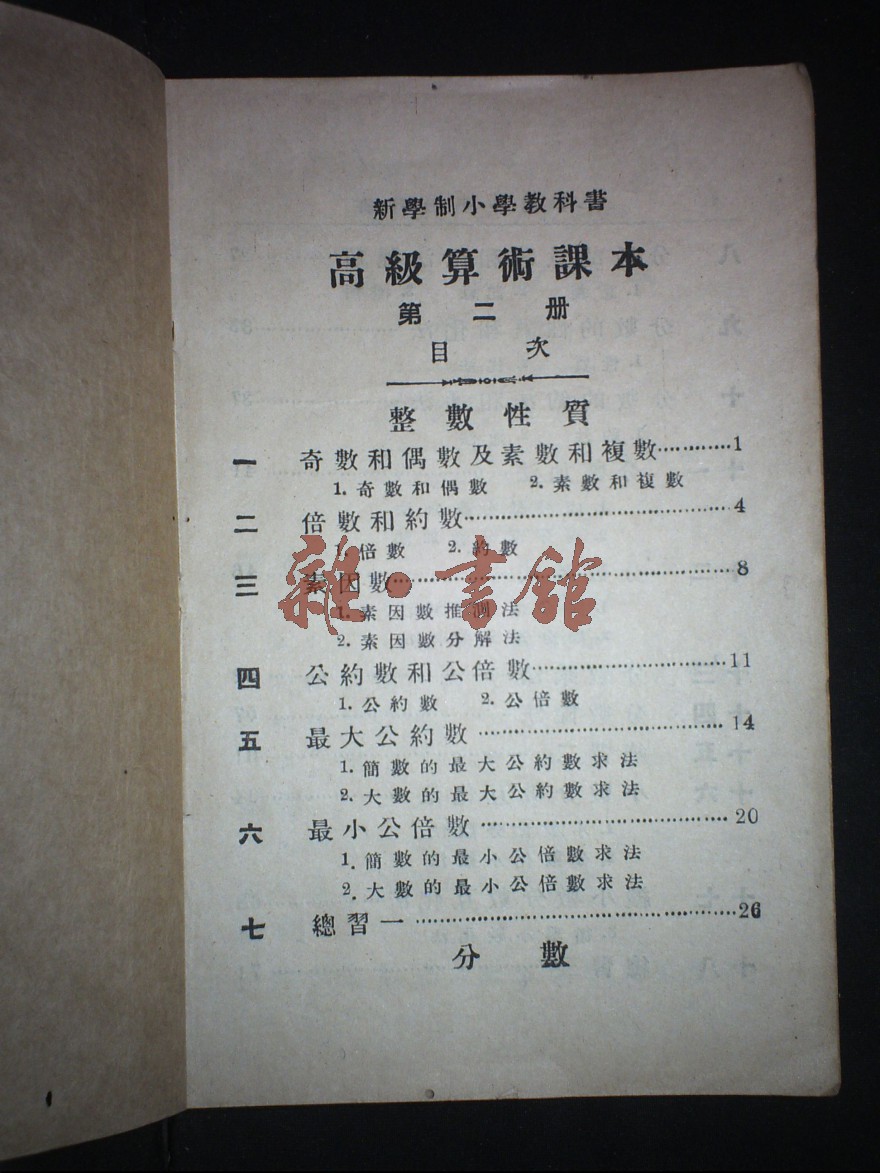 新學制小學教科書
高級算術課本
第二册
目次
整數性質
一 奇數和偶數及素數和複數············1
1. 奇數和偶數 2. 素數和複數
二 倍數和約數············4
1. 倍數 2. 約數
三 素因數············8
1. 素因數推測法
2. 素因數分解法
四 公約數和公倍數············11
1. 公約數 2. 公倍數
五 最大公約數············14
1. 簡數的最大公約數求法
2. 大數的最大公約數求法
六 最小公倍數············20
1. 簡數的最小公倍數求法
2. 大數的最小公倍數求法
七 總習一············26
分數
雜·書館